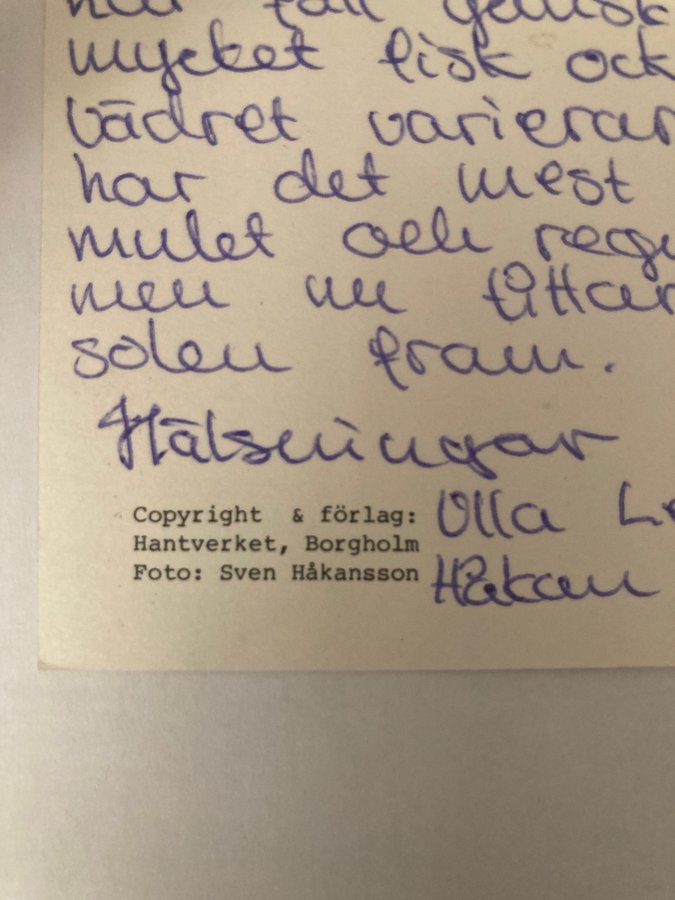 mycket fisk ock
vädret varierar
har det mest
mulet och regn
men nu tittar
solen fram.
Hälsningar
Copyright & förlag: Ulla
Hantverket, Borgholm
Foto: Sven Håkansson Håkan